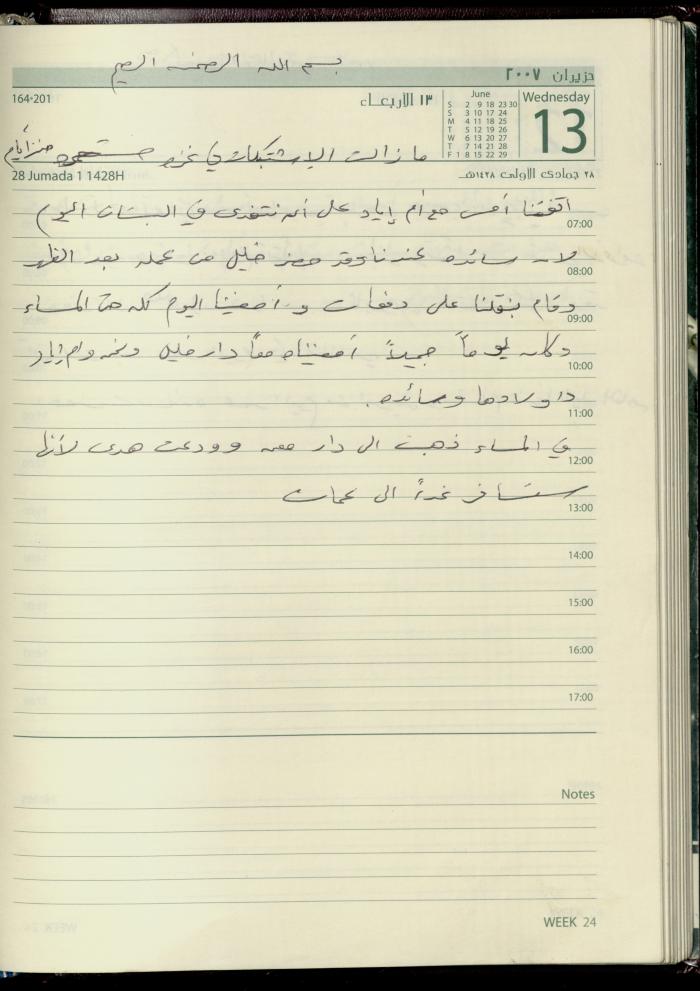 بسم الله الرحمن الرحيم
حزيران ٢٠٠٧
164-201
١٣ الأربعـاء
June
S 2 9 16 23 30
S 3 10 17 24
M 4 11 18 25
T 5 12 19 26
W 6 13 20 27
T 7 14 21 28
F 1 8 15 22 29
Wednesday
13
ما زالت الاشتباكات في غزة مستمرة منذ أيام
28 Jumada 1 1428H
٢٨ جمادى الأولى ١٤٢٨هـ
اتفقنا أمس مع أم إياد على أن نتغدى في البستان اليوم
07:00
لأن سائده عندنا وقد حضر خليل من عمله بعد الظهر
08:00
وقام بنقلنا على دفعات وأمضينا اليوم كله حتى المساء
09:00
وكان يوماً جميلاً أمضيناه معاً دار خليل ونحن وام إياد
10:00
واولادها وسائده.
11:00
في المساء ذهبت الى دار وودعت هدى لأنها
12:00
ستسافر غداً الى عمان
13:00
14:00
15:00
16:00
17:00
Notes
WEEK 24